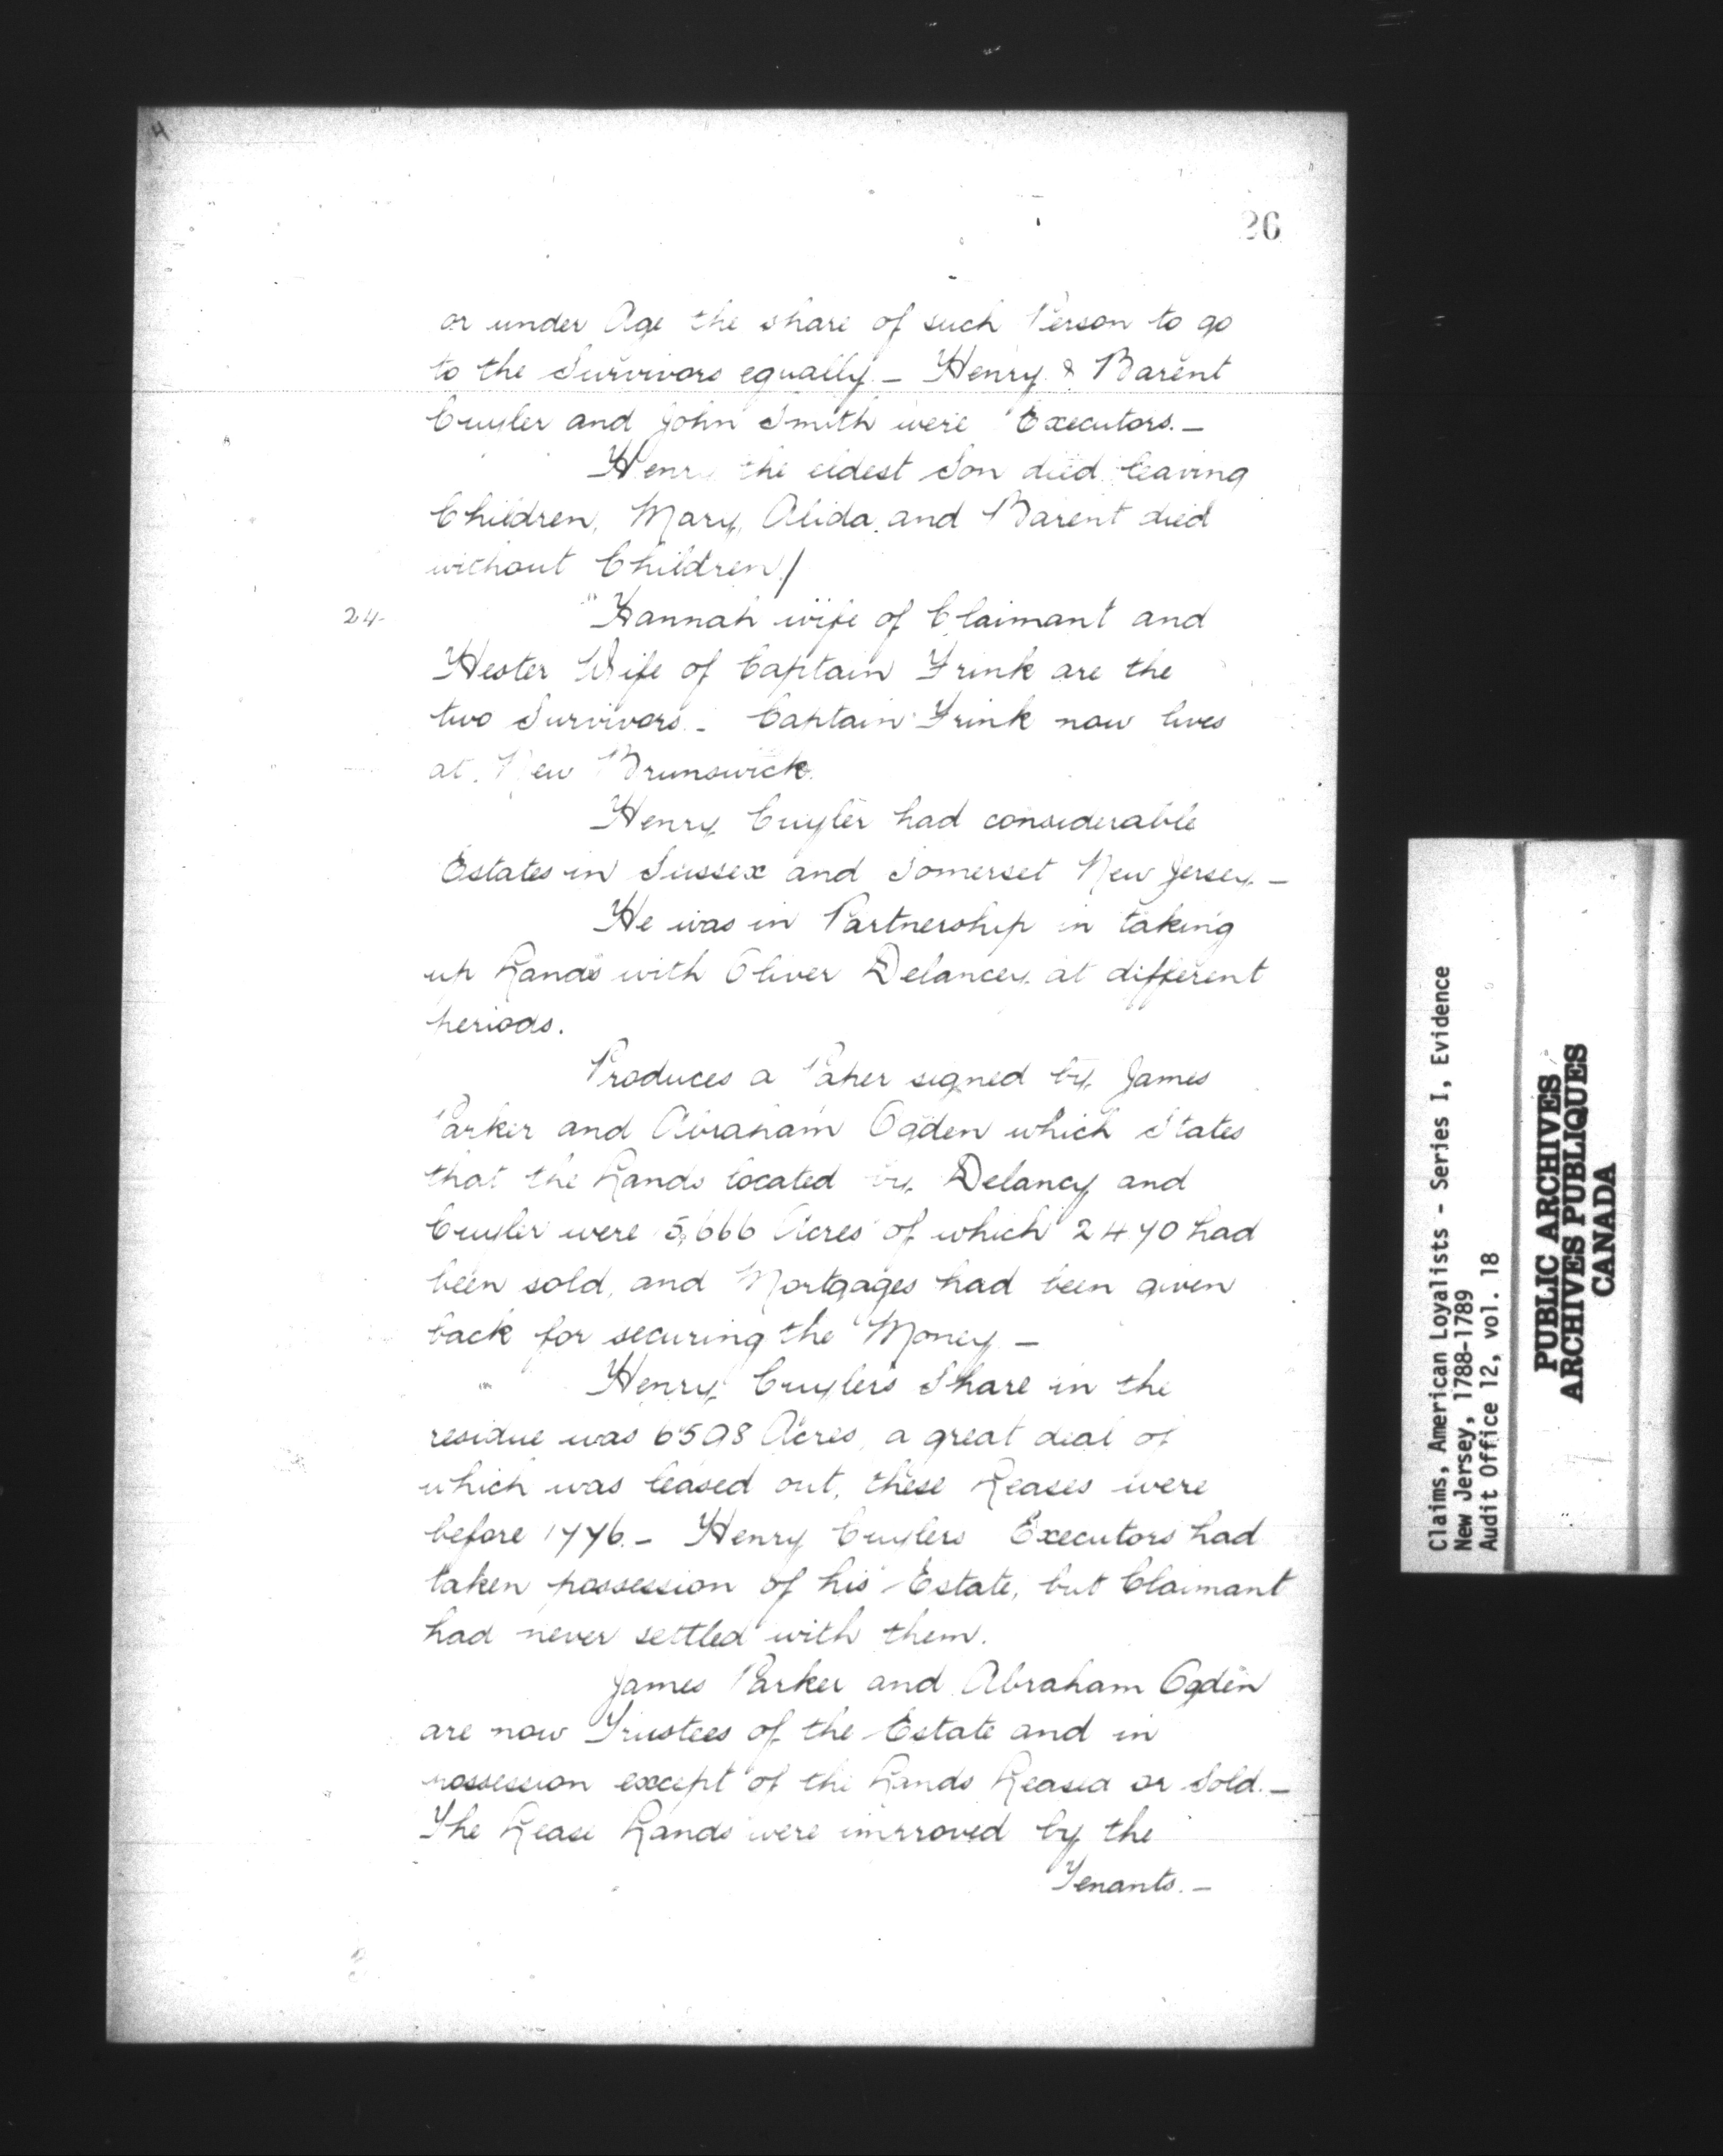 26
or under Age the share of such Person to go
to the Survivors equally – Henry & Barent
Cuyler and John Smith were Executors. –
Henry the eldest Son died leaving
Children, Mary, Alida, and Barent died
without Children/
24
Hannah wife of Claimant and
Hester Wife of Captain Frink are the
two Survivors. – Captain Frink now lives
at New Brunswick.
Henry Cuyler had considerable
Estates in Sussex and Somerset New Jersey. –
He was in Partnership in taking
up Lands with Oliver Delancey at different
periods.
Produces a Paper signed by James
Parker and Abraham Ogden which States
that the Lands located by Delancy and
Cuyler were 5,666 Acres of which 2470 had
been sold, and Mortgages had been given
back for securing the Money –
Henry Cuylers Share in the
residue was 6598 Acres, a great deal of
which was leased out, these Leases were
before 1776. – Henry Cuylers Executors had
taken possession of his Estate, but Claimant
had never settled with them.
James Parker and Abraham Ogden
are now Trustees of the Estate and in
possession except of the Lands Leased or Sold. –
The Lease Lands were improved by the
Tenants. –
Claims, American Loyalists - Series I, Evidence
New Jersey, 1788-1789
Audit Office 12, vol. 18
PUBLIC ARCHIVES
ARCHIVES PUBLIQUES
CANADA